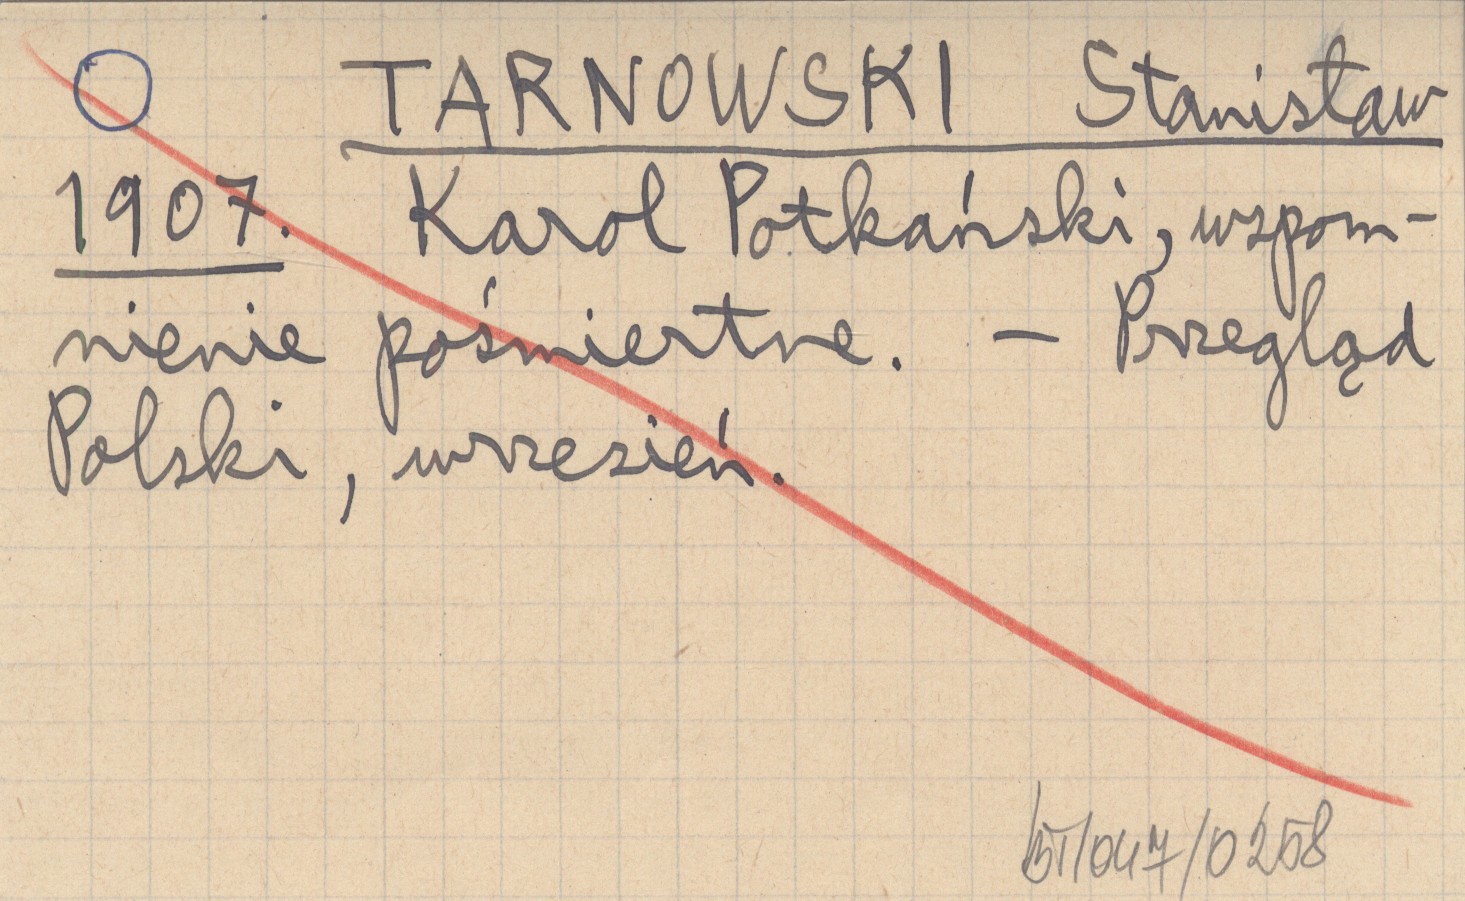 TARNOWSKI Stanisław
1907. Karol Potkański, wspom-
nienie pośmiertne. — Przegląd
Polski, wrzesień.
BT/047/0258